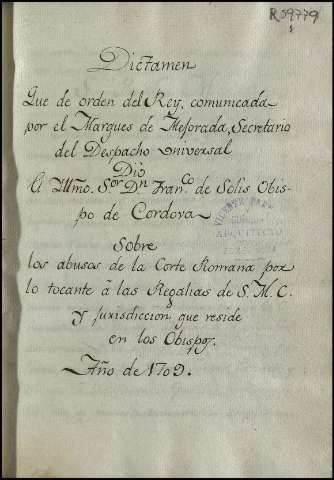 R 59779
Dictamen
Que de orden del Rey, comunicada
por el Marques de Mejorada, Secretario
del Despacho Vniversal
Dio
el Yllmo. Sor. Dn. Franco. de Solis Obis-
po de Cordova
Sobre
los abusos de la Corte Romana por
lo tocante â las Regalias de S. M. C.
y jurisdiccion que reside
en los Obispos.
Año de 1709.
VICENTE
ARQUITECTO